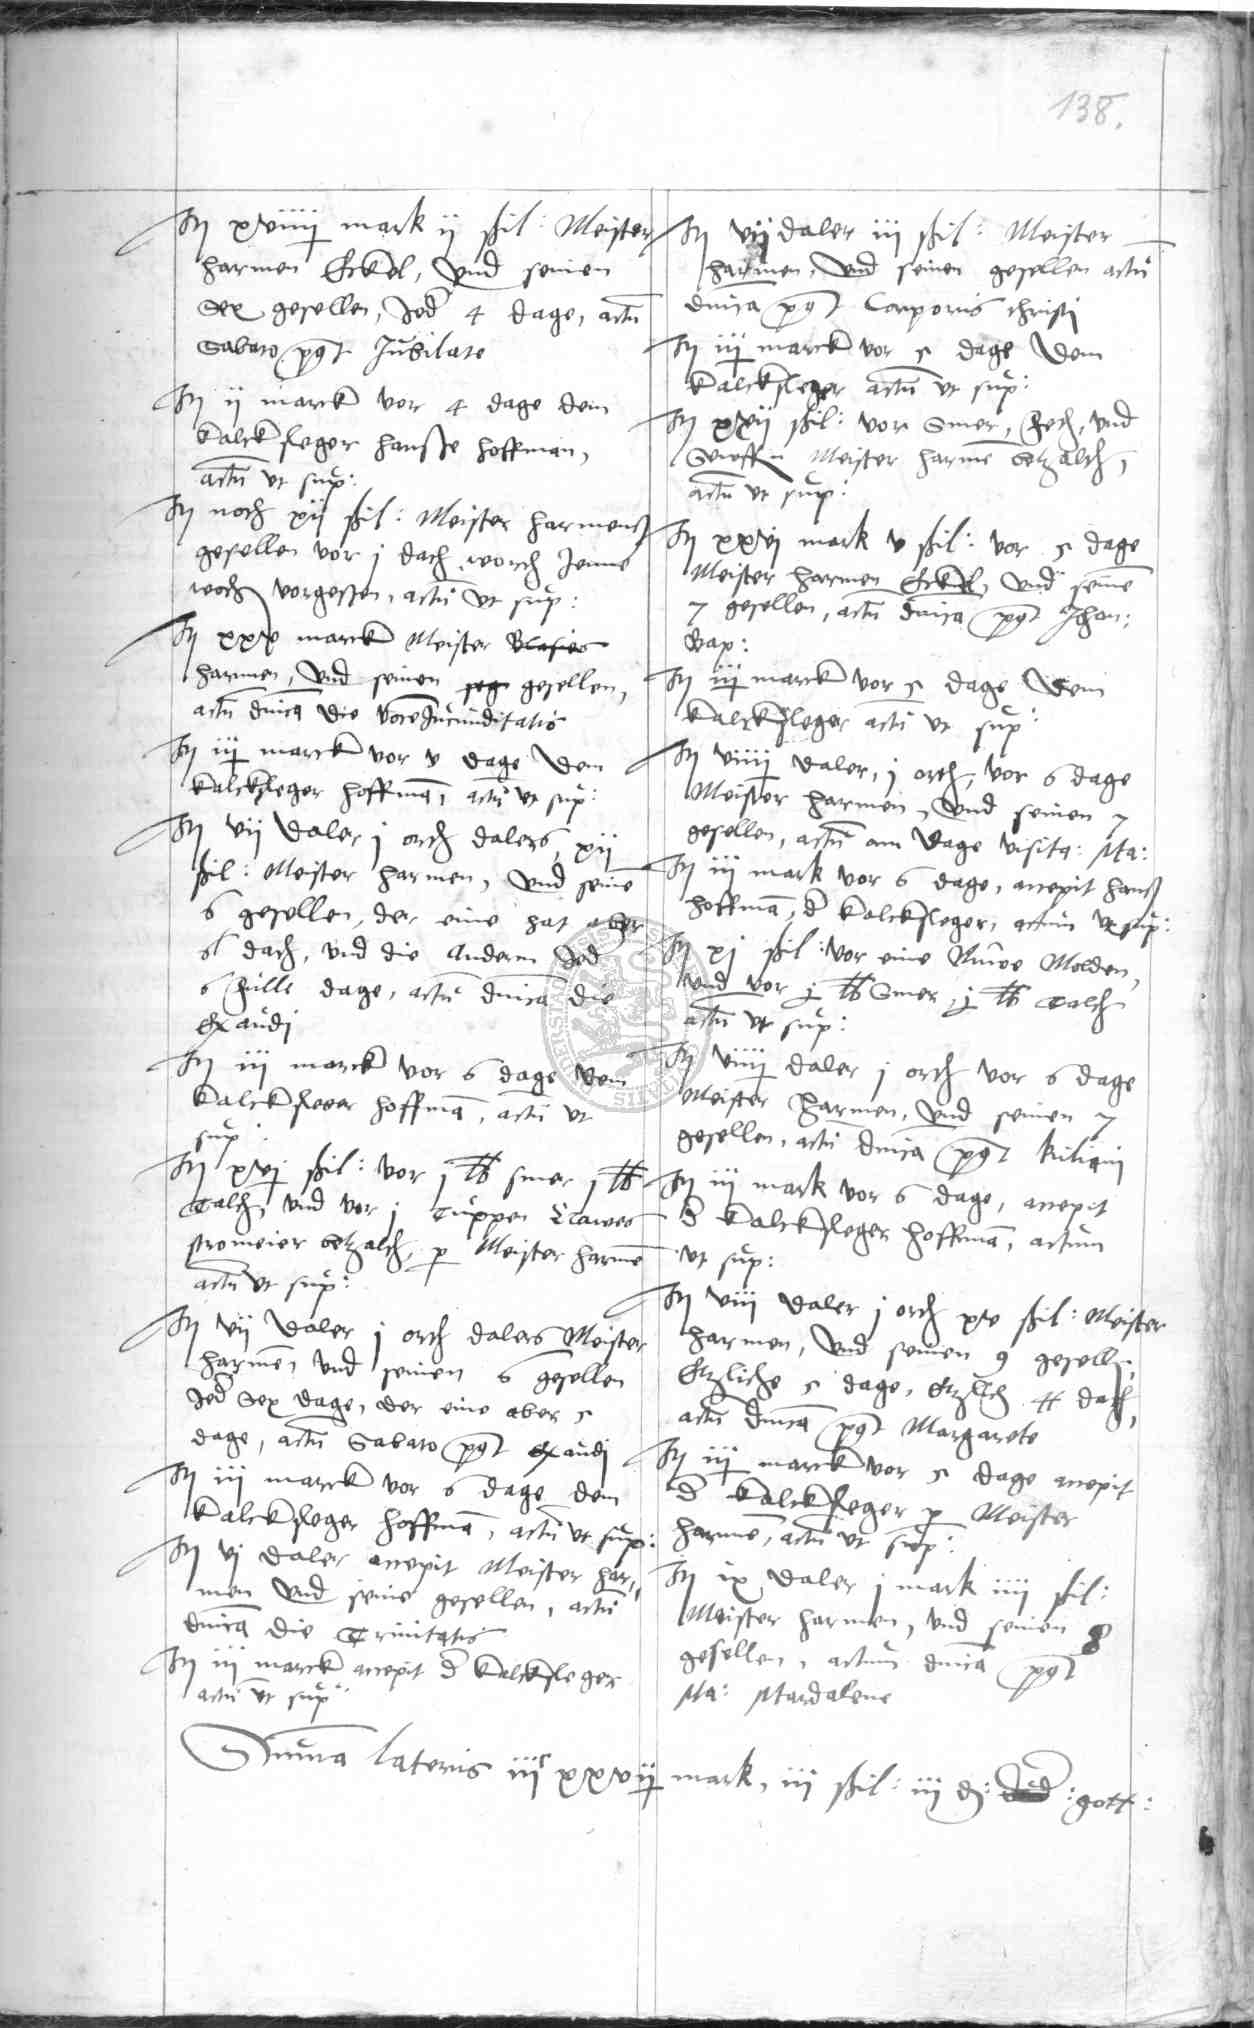 138.
It xviiij mark ij ßil: Meister
harmen Eckel, vnd seinen
Sex gesellen, Jed 4 dage, actū
Sabato pꝰt Jubilate
It ij marck vor 4 dage dem
kalckfleger hanße hoffman,
actū vt sup:
It noch xij ßil: Meister harmenß
gesellen vor j dach, worch Jenne
woch vorgessen, actū vt sup:
It xxx marck Meister Blasies
harmen, vnd seinen seg gesellen,
actū dnica die vocē Jucunditatis
It iij marck vor v dage dem
kalckfleger hoffmā, actū vt sup:
It vij daler j orth dalers, xij
ßil: Meister harmen, vnd seinē
6 gesellen, der eine hat aber
dach, vnd die Andern Jed
6 fulle dage, actū dnica die
Exaudj
It iij marck vor 6 dage dem
kalckfleger hoffmā, actū vt
sup:
It xvj ßil: vor j ℔ smer j ℔
Talch, vnd vor j Tuppen Clawes
stromeier betzalth, p Meister harmē
actū vt sup:
It vij daler j orth dalers Meister
harmen vnd seinen 6 gesellen
Jed Sex dage, der eine aber 5
dage, actū Sabato pꝰt Exaudj
It iij marck vor 6 dage dem
kalckfleger hoffmā, actū vt sup:
It vj daler accepit Meister har,
men vnd seine gesellen, actū
dnicā die Trinitatis
It iij marck accepit d kalckfleger
actū vt sup:
It vij daler iij ßil: Meister
harmen, vnd seinen gesellen actū
dnica pꝰt Corporis christj
It iij marck vor 5 dage dem
kalckfleger actū vt sup:
It xxij ßil: vor Smer, vnd
Meister harmē betzalth,
actū vt sup:
It xxvj mark v ßil: vor 5 dage
Meister harmen Eckel, vnd seinē
7 gesellen, actū dnica pꝰt Johan:
Bap:
It iij marck vor 5 dage dem
kalckfleger actū vt sup:
It viiij daler, j orth, vor 6 dage
Meister harmen, vnd seinen 7
gesellen, actū am dage visita: Ma:
It iij mark vor 6 dage, accepit hanß
hoffmā, d kalckfleger, actum vt sup:
It xj ßil: vor eine Nuwe Molden,
vnd vor j ℔ Smer, j ℔ Talch
actū vt sup:
It viiij daler j orth vor 6 dage
Meister Harmen, vnd seinen 7
gesellen, actū dnica pꝰt kilianj
It iij mark vor 6 dage, accepit
d kalckfleger hoffmā, actum
vt sup:
It viij daler j orth xv ßil: Meister
harmen, vnd seinen 9 gesell:
Etzliche 5 dage, Etzlich 4 dach,
actū dnicā pꝰt Margarete
It iij marck vor 5 dage accepit
d kalckfleger p Meister
harmē, actū vt sup:
It ix daler j mark iiij ßil:
Meister harmen, vnd seinen 8
gesellen, actum dnicā pꝰt
Ma: Mardalene
Summa lateris iijᶜ xxvij mark, iij ßil: iij d: gott: